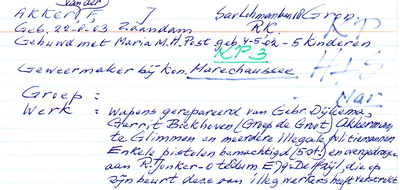 van der
AKKER, F. 7 Sav. Lohmanlaan 10 Gron.
Geb. 22-8-03 Zaandam R.K.
Gehuwd met Maria M.H. Post geb. 4-5-02 - 5 kinderen
KP 3
KP
Geweermaker bij Kon. Marechaussee
Groep :
Werk : wapens gerepareerd van Gebr. Dijkema,
Gerrit Boekhoven (Groep de Groot) Akkerman
te Glimmen en meerdere illegale politiemannen
Enkele pistolen bemachtigd (5 of) en overgedragen
aan R. Jonker - o t d b m en De die op
zijn beurt deze aan illeg. werkers heeft verstrekt